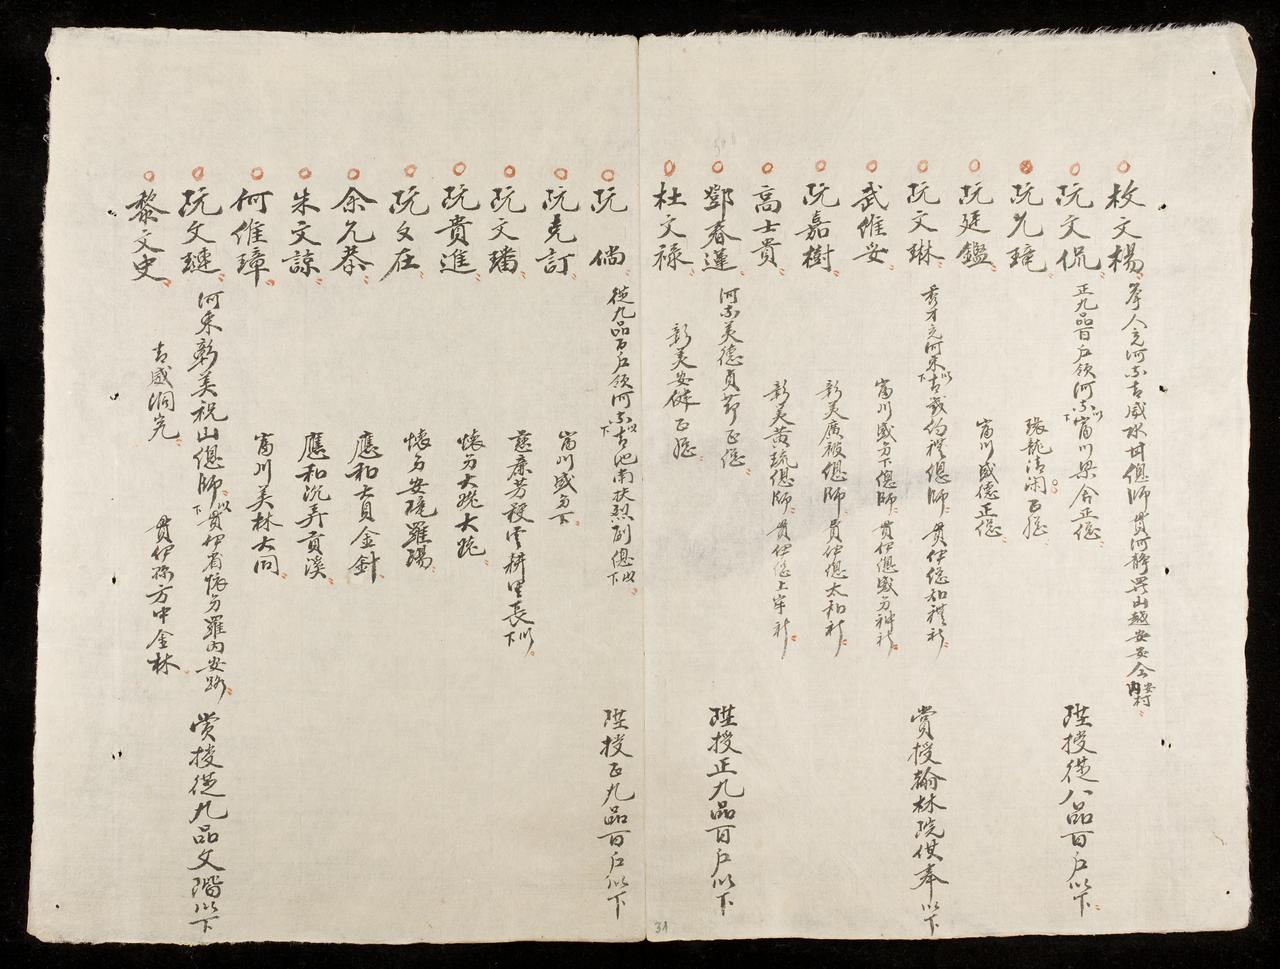 枚文楊 举人充河東古威水甘總師貫河靜羅山越安安全安內村
阮文侃 正九品百戶領河東以下富川梁舍正總 陞授從八品百戶以下
阮允璋 張龍清閑正總
阮廷鑑 富川盛德正總
阮文琳 秀才充河東以下古威約禮總師 貫伊總和禮社 賞授翰林院供奉以下
武維安 富川盛分下總師 貫伊總盛分神社
阮嘉樹 彰美廣被總師 貫伊總太和社
高士貴 彰美黃琉總師 貫伊總上牢社
鄧春蓮 河東美德貞節正總 陞授正九品百戶以下
杜文祿 彰美安伴正總
阮倘 從九品百戶領河東以下古池南扶烈副總以下 陞授正九品百戶以下
阮克訂 富川盛分下
阮文璠 慈廉芳稷雲耕里長以下
阮貴進 懷分大䟽大䟽
阮文在 懷分安坑羅陽
余允泰 應和大貝金針
朱文諒 應和沉弄貢溪
何維璋 富川美林大同
阮文璉 河東彰美祝山總師以下貫伊省懷分羅內安路 賞授從九品文階以下
黎文史 古威洞完 貫伊縣方中金林
31